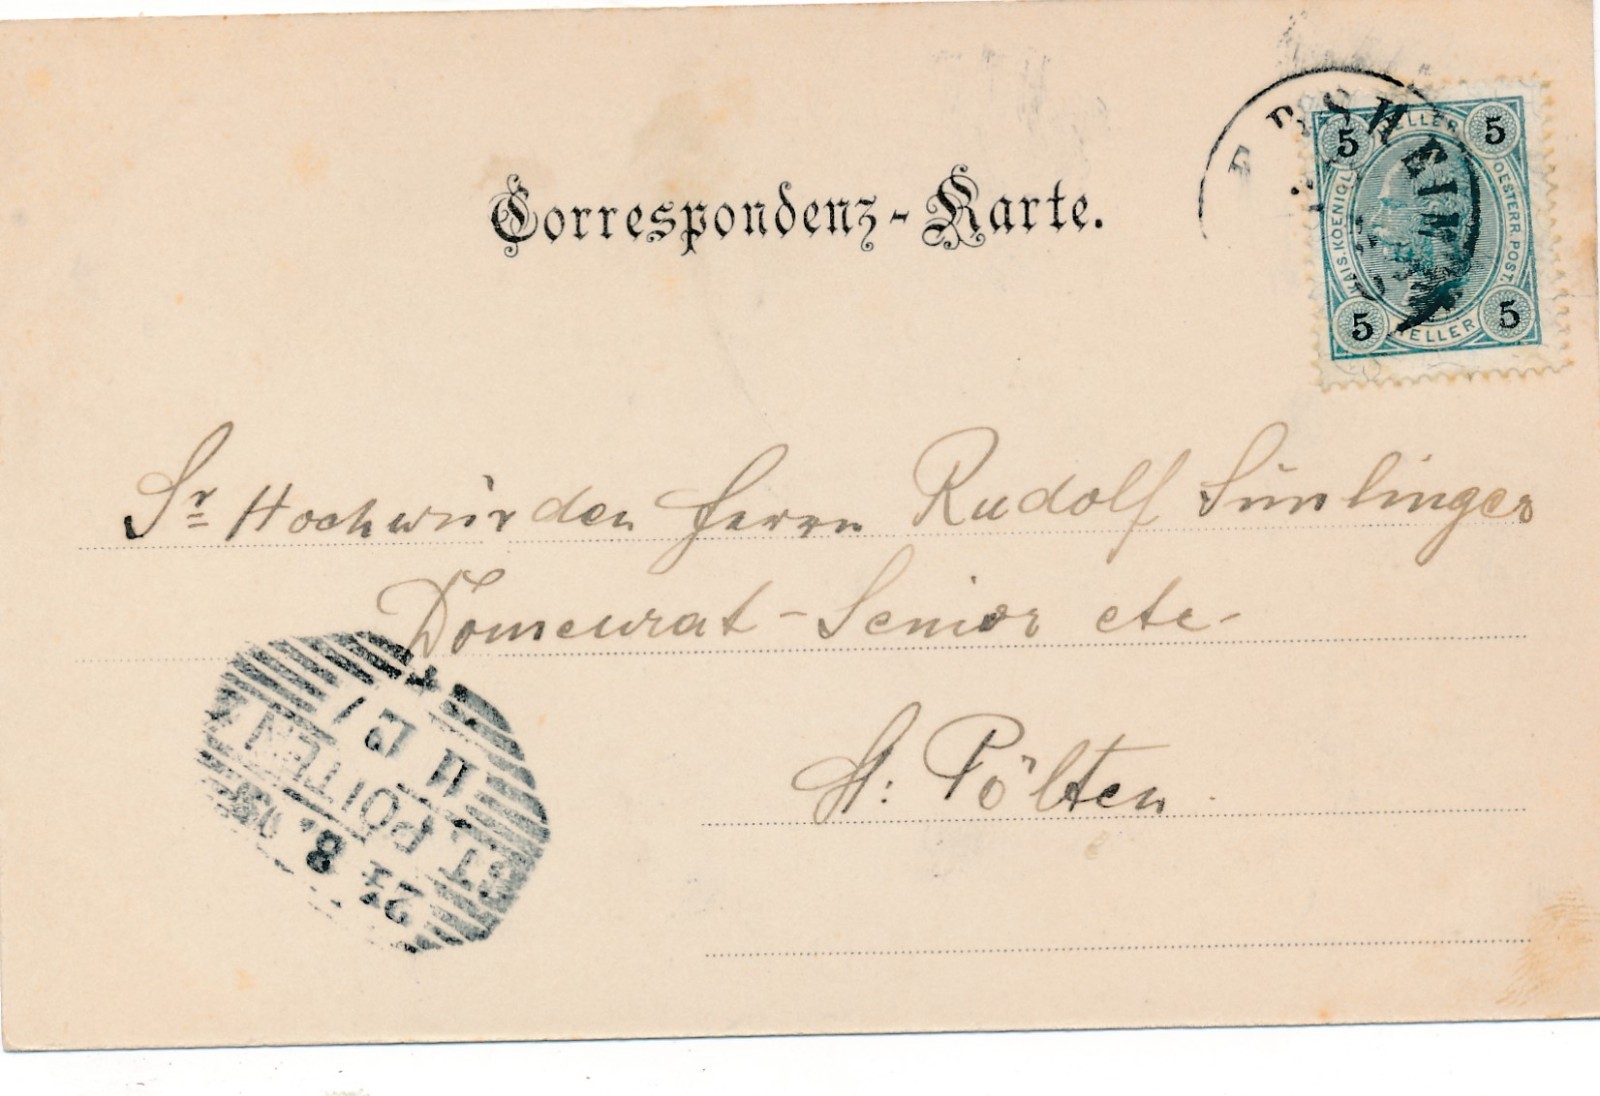 Correspondenz-Karte.
5 HELLER 5
KAIS. KOENIGL. OESTERR. POST.
5 HELLER 5
Sr Hochwürden Herrn Rudolf
Domcurat-Senior etc-
St: Pölten
ST. PÖLTEN 1
8.